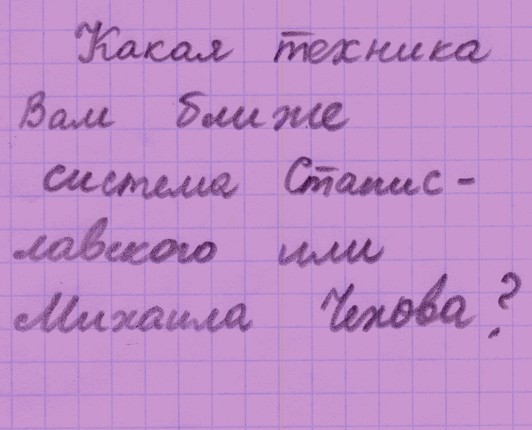 Какая техника
Вам ближе
система Станис-
лавского или
Михаила Чехова?